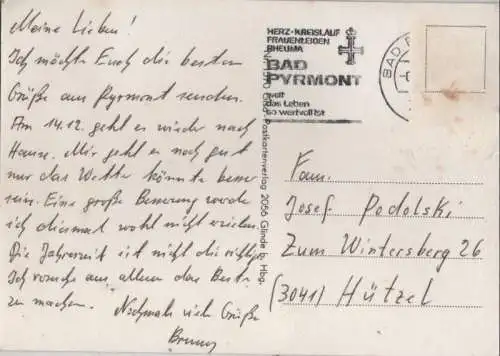 Meine Lieben!
Ich möchte Euch die besten
Grüße aus Pyrmont senden.
Am 14.12. geht es wieder nach
Hause. Mir geht es noch gut
nur das Wetter könnte besser
sein. Eine große Besserung werde
ich diesmal wohl nicht erzielen.
Die Jahreszeit ist nicht die richtige
Ich versuche aus allem das Beste
zu machen. Nochmals viele Grüße
HERZ·KREISLAUF
FRAUENLEIDEN
RHEUMA
BAD
PYRMONT
weil
das Leben
so wertvoll ist
BAD
Postkartenverlag 2056 Glinde b. Hbg.
Fam.
Josef Podolski
Zum Wintersberg 26
(3041) Hützel